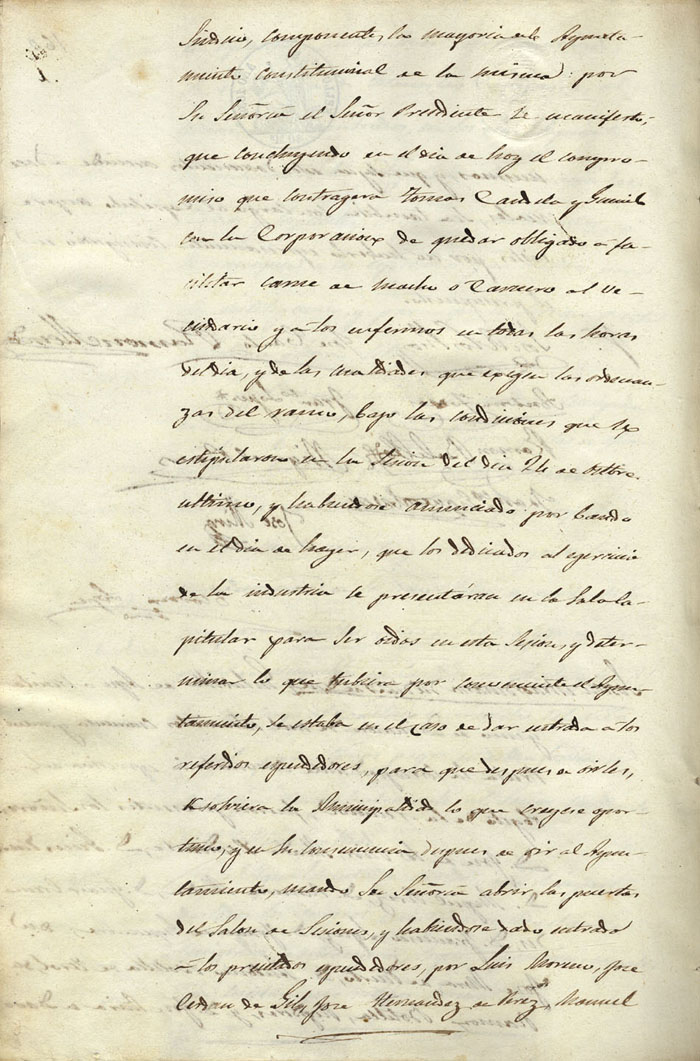 Sindico, componentes la mayoria de el Ayunta-
miento Constitucional de la misma: por
Su Señoria el Señor Presidente se manifesto,
que concluyendo en el dia de hoy el compro-
miso que contragera Tomas Candela y
con la Corporacion de quedar obligado a fa-
cilitar carne de Macho o Carnero al Ve-
cindario y a los enfermos en todas las horas
del dia, y de las calidades que exigen las ordenan-
zas del ramo, bajo las condiciones que se
estipularon en la Sesion del dia 24 de Octbre.
ultimo, y habiendose anunciado por bando
en el dia de hayer, que los dedicados al egercicio
de la industria se presentáran en la Sala Ca-
pitular para ser oidos en esta Sesion, y deter-
minar lo que hubiera por conveniente el Ayun-
tamiento, se estaba en el caso de dar entrada a los
referidos espendedores, para que despues de oirles,
resolviera la Municipalidad lo que creyese opor-
tuno, y en su consecuencia despues de oir al Ayun-
tamiento, mandó Su Señoria abrir las puertas
del Salon de Sesiones, y habiendose dado entrada
a los precitados espendedores, por Luis Moreno, Jose
de Gil, Jose Hernandez de Perez, Manuel